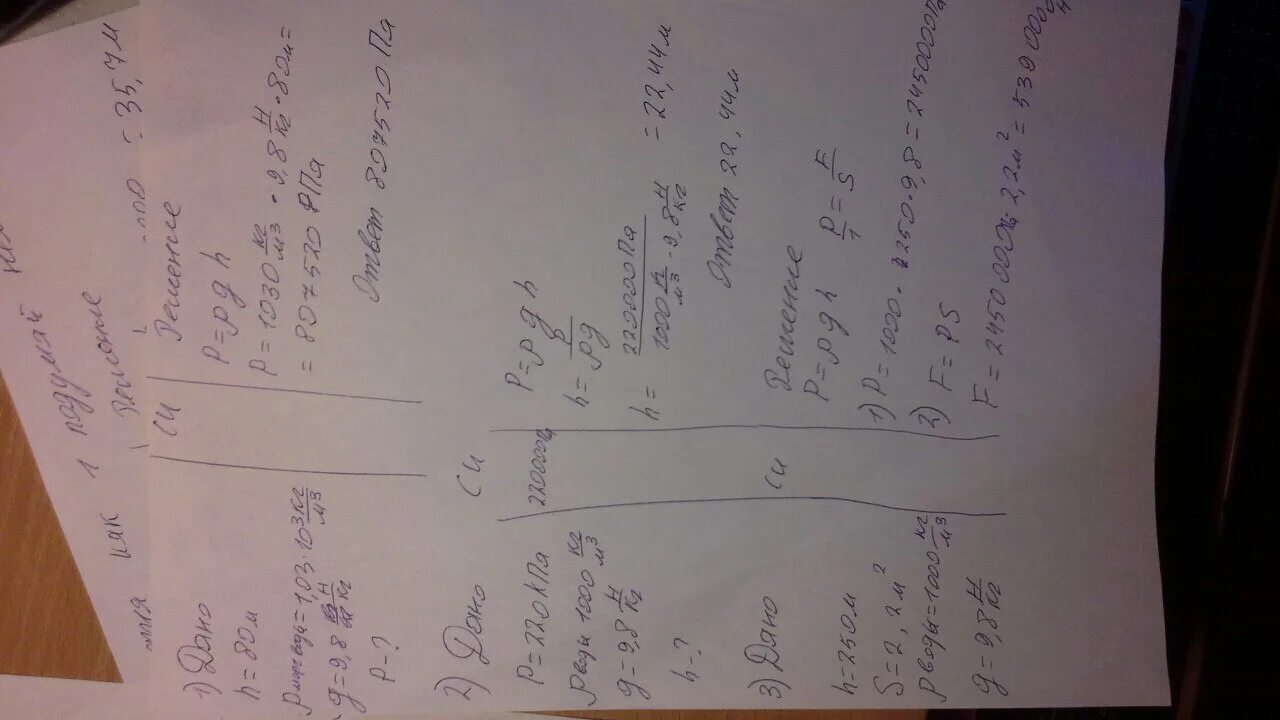 как 1 подумай
Решение
= 35,7 м
1) Дано
h = 80 м
ρ морс.воды = 1,03 · 10³ кг/м³
g = 9,8 Н/кг
P - ?
СИ
Решение
P = ρ g h
P = 1030 кг/м³ · 9,8 Н/кг · 80 м =
= 807520 Па
Ответ 807520 Па
2) Дано
P = 220 кПа
ρ воды 1000 кг/м³
g = 9,8 Н/кг
h = ?
СИ
220000 Па
P = ρ g h
h = P/ρg
h = 220000 Па / 1000 кг/м³ · 9,8 Н/кг = 22,44 м
Ответ 22,44 м
3) Дано
h = 250 м
S = 2,2 м²
ρ воды = 1000 кг/м³
g = 9,8 Н/кг
СИ
Решение
P = ρ g h P/1 = F/S
1) P = 1000 · 250 · 9,8 = 2450000 Па
2) F = PS
F = 2450000 Па · 2,2 м² = 5390000 Н